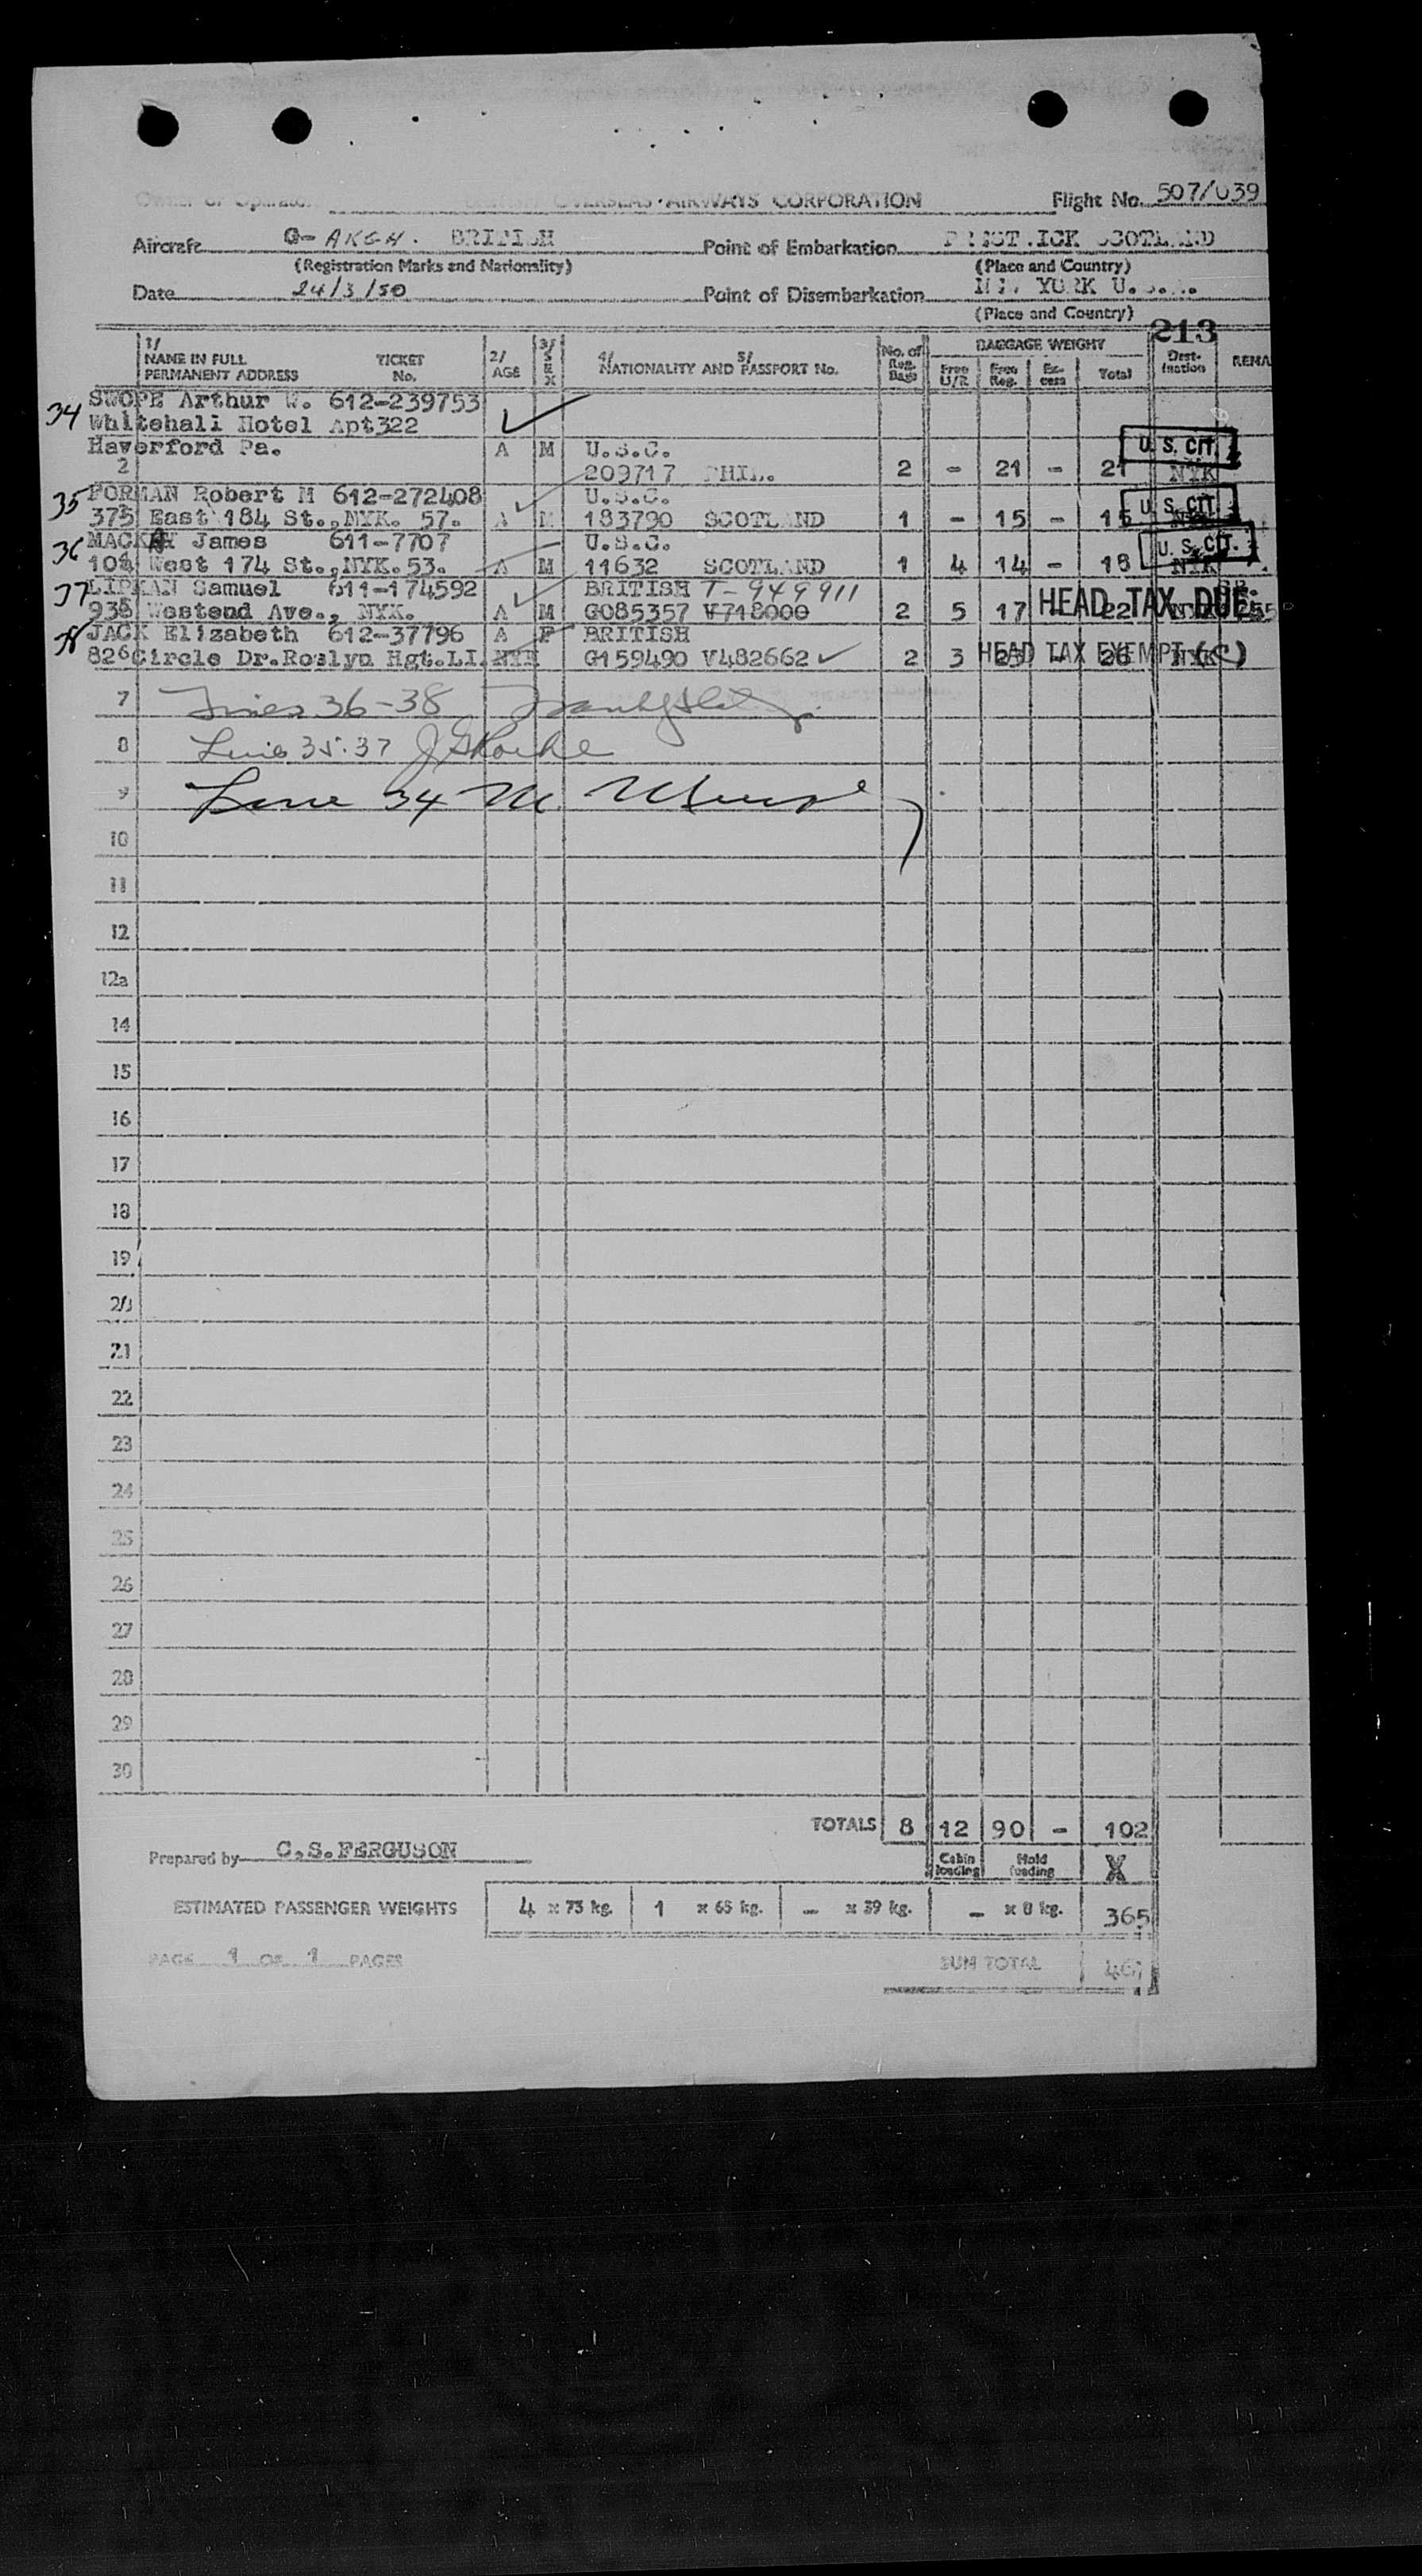 Owner or Operator BRITISH OVERSEAS AIRWAYS CORPORATION Flight No. 507/039
Aircraft G-AKGH. BRITISH Point of Embarkation PRESTWICK SCOTLAND
(Registration Marks and Nationality) (Place and Country)
Date 24/3/50 Point of Disembarkation NEW YORK U.S.A.
(Place and Country)
213
1/ NAME IN FULL PERMANENT ADDRESS TICKET No. 2/ AGE 3/ SEX 4/ 5/ NATIONALITY AND PASSPORT No. No. of Reg. Bags BAGGAGE WEIGHT Free U/R Free Reg. Ex-cess Total Dest-ination REMA
34 SWOPE Arthur W. 612-239753
Whitehall Hotel Apt322
Haverford Pa. A M U.S.C. U. S. CIT.
2 209717 PHIL. 2 - 21 - 21 NYK
35 FORMAN Robert M 612-272408 U.S.C. U. S. CIT.
375 East 184 St., NYK. 57. A M 183790 SCOTLAND 1 - 15 - 15
36 MACKAY James 611-7707 U.S.C. U. S. CIT.
104 West 174 St., NYK. 53. A M 11632 SCOTLAND 1 4 14 - 18 NYK
37 LIPMAN Samuel 611-174592 BRITISH T-949911
938 Westend Ave., NYK. A M G085357 V718000 2 5 17 22 HEAD TAX DUE
38 JACK Elizabeth 612-37796 A F BRITISH
826 Circle Dr. Roslyn Hgt. LI. NYK G159490 V482662 2 3 23 - 26 NYK HEAD TAX EXEMPT (C)
7 Lines 36-38
8 Line 35.37
9 Line 34 M.
10
11
12
12a
14
15
16
17
18
19
20
21
22
23
24
25
26
27
28
29
30
TOTALS 8 12 90 - 102
Prepared by C.S.FERGUSON Cabin loading Hold loading X
ESTIMATED PASSENGER WEIGHTS 4 x 73 kg. 1 x 65 kg. - x 39 kg. - x 8 kg. 365
PAGE 1 OF 1 PAGES SUM TOTAL 467